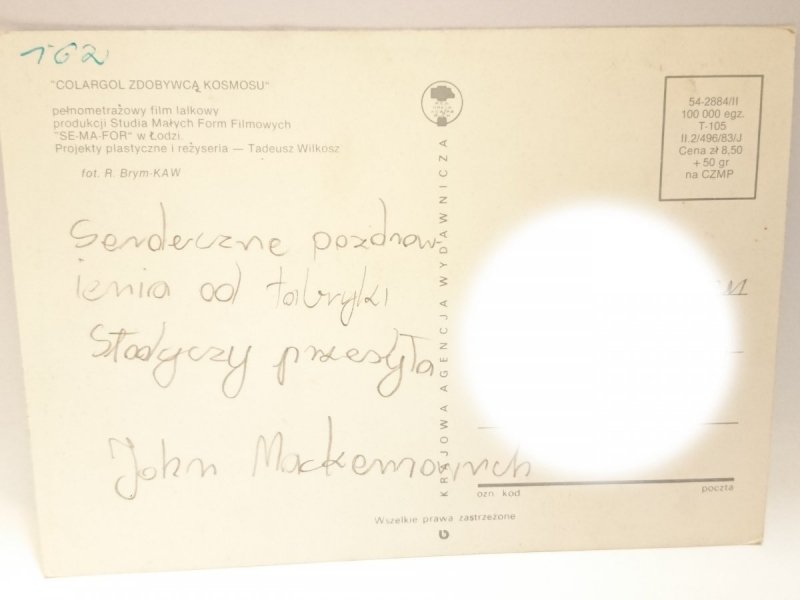 162
"COLARGOL ZDOBYWCĄ KOSMOSU"
pełnometrażowy film lalkowy
produkcji Studia Małych Form Filmowych
"SE-MA-FOR" w Łodzi.
Projekty plastyczne i reżyseria — Tadeusz Wilkosz
fot. R. Brym-KAW
Serdeczne pozdrow-
ienia od fabryki
Słodyczy przesyła
John
KRAJOWA AGENCJA WYDAWNICZA
54-2884/II
100 000 egz.
T-105
II.2/496/83/J
Cena zł 8,50
+ 50 gr
na CZMP
ozn kod
poczta
Wszelkie prawa zastrzeżone